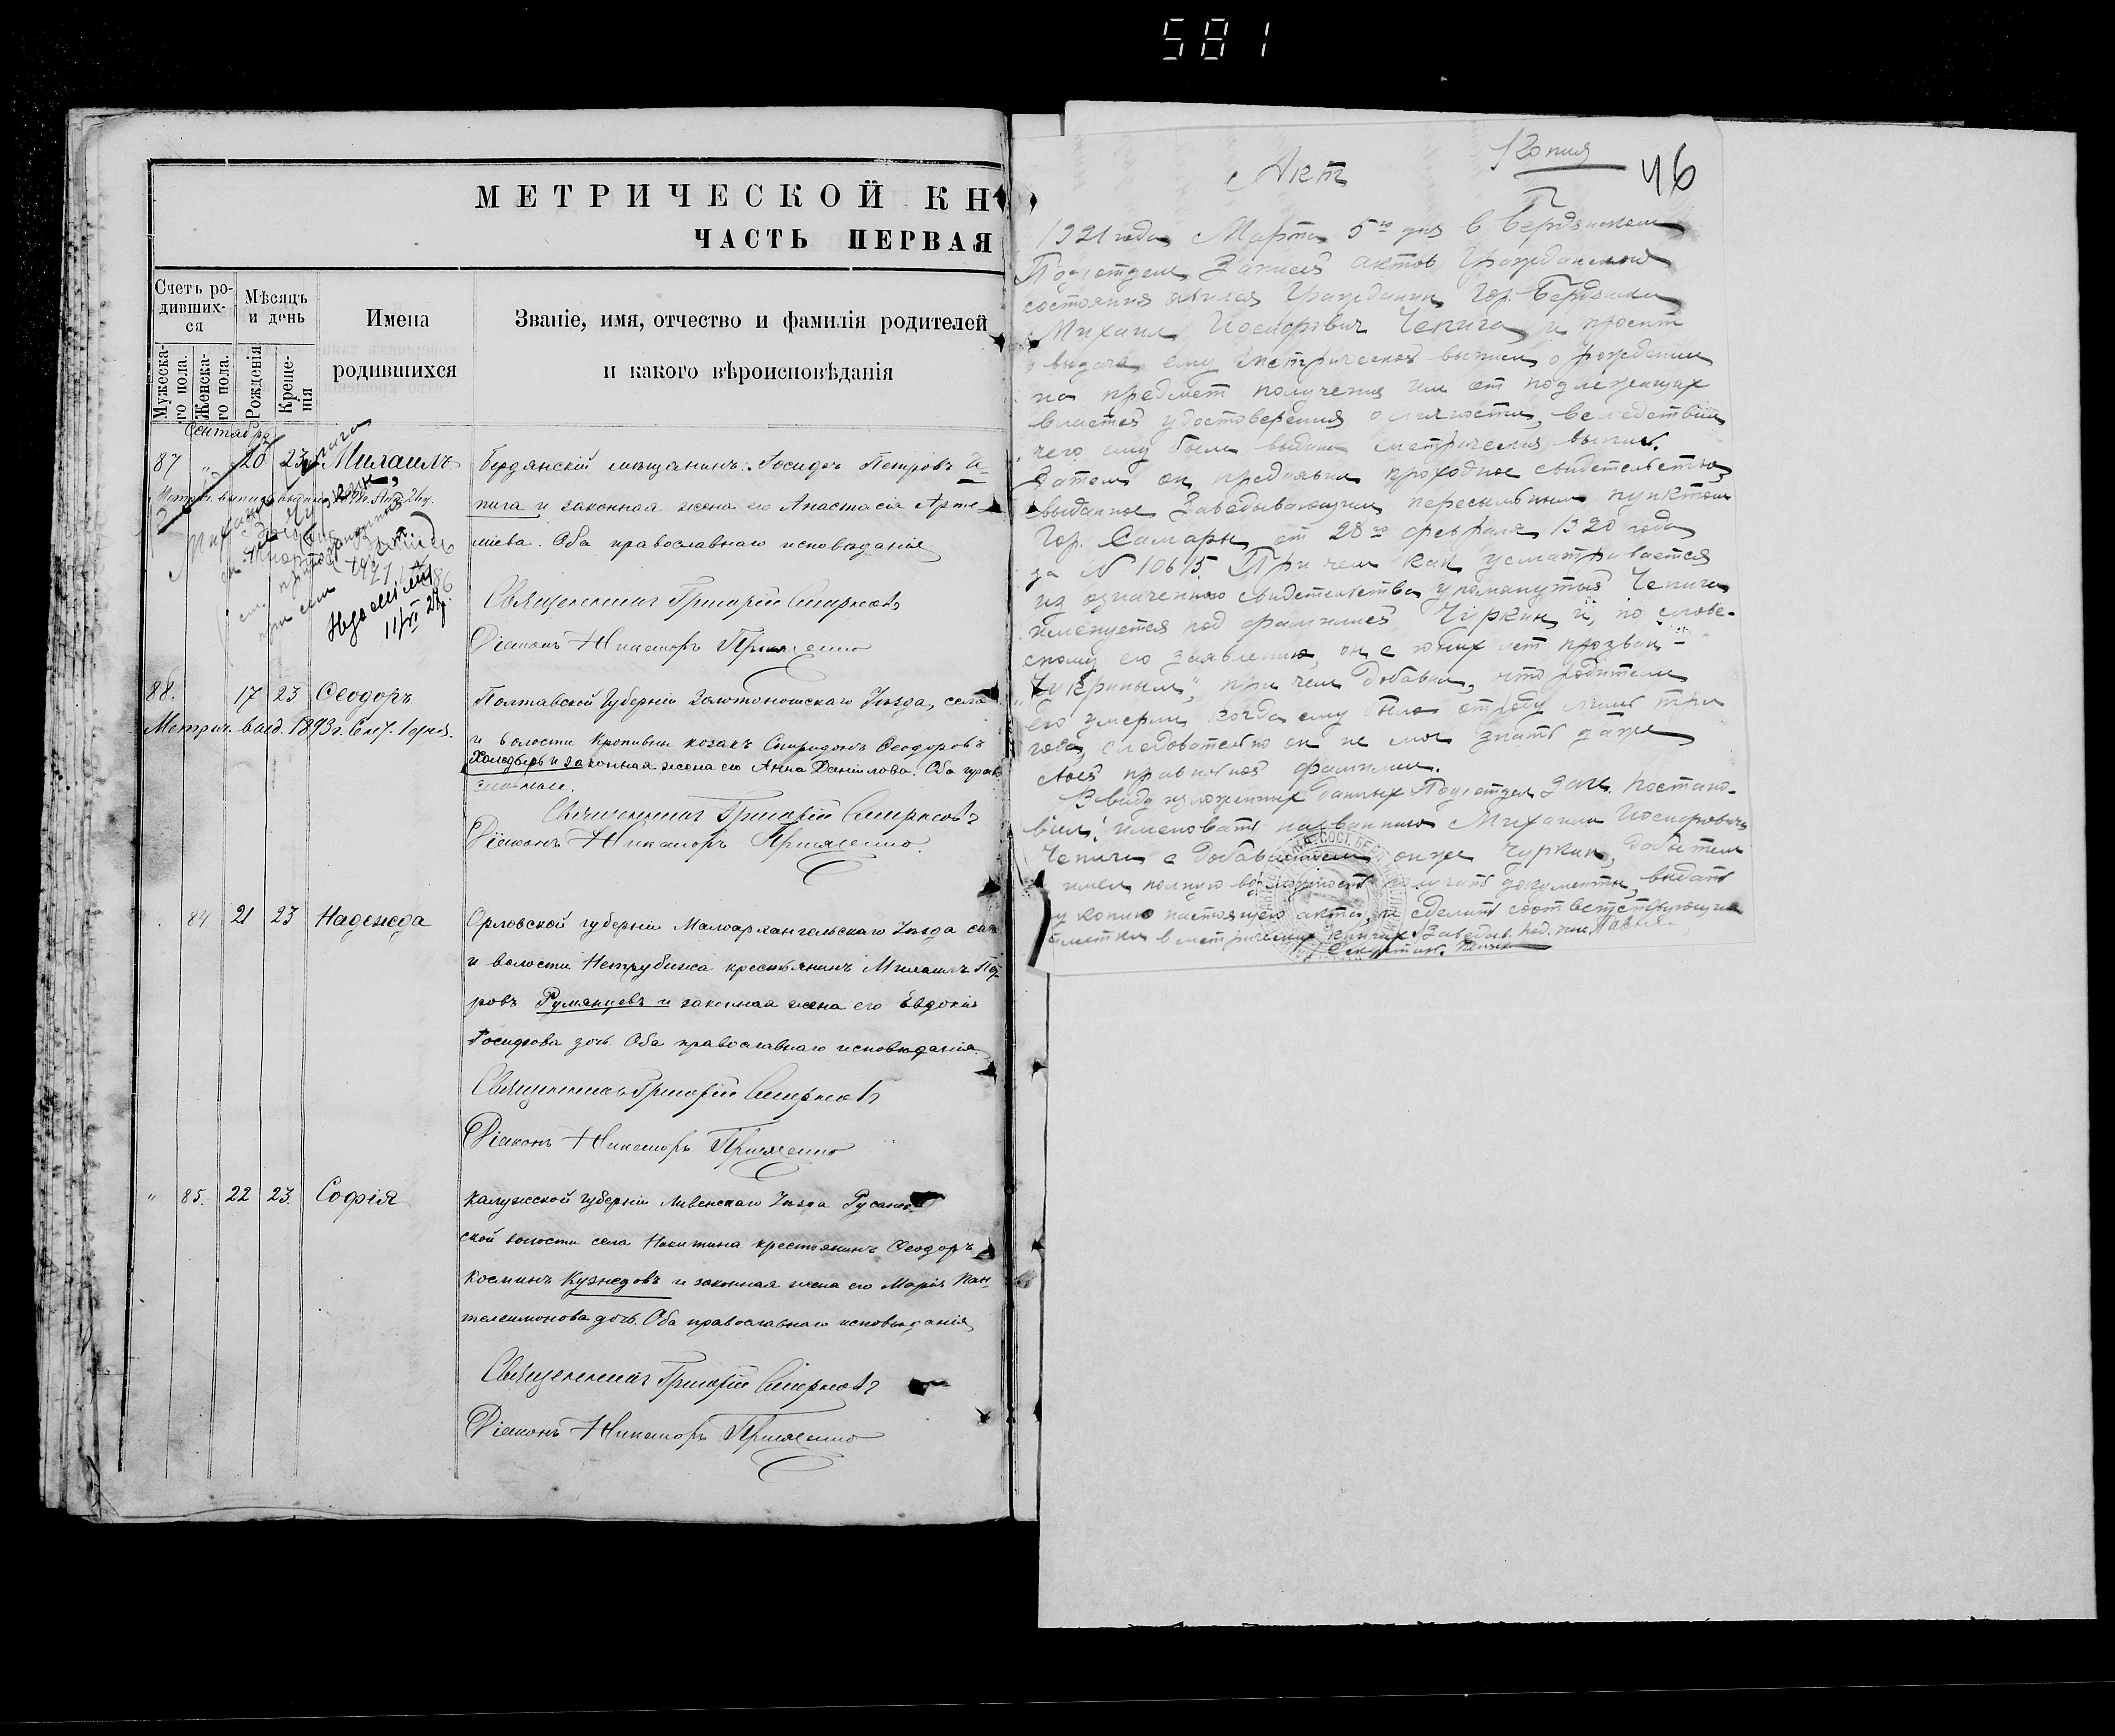 581
МЕТРИЧЕСКОЙ КН
ЧАСТЬ ПЕРВАЯ
Счетъ ро-
дивших-
ся
Мѣсяцъ
и день
Имена
родившихся
Званіе, имя, отчество и фамилія родителей
и какого вѣроисповѣданія
Мужеска-
го пола.
Женска-
го пола.
Рожденія
Креще-
нія
Сентябрь
87 " 20 23 Михаилъ
Бердянскій мѣщанинъ Іосифъ Петровъ Че-
пига и законная жена его Анастасія Арте-
міева. Оба православнаго исповѣданія
Священникъ Григорій Смирновъ
Діаконъ Никаноръ
88. 17 23 Ѳеодоръ
Метрич. выд. 1893 г.
Полтавской губерніи Золотоношскаго Уѣзда, села
и волости Кропивны козакъ Спиридонъ Ѳеодоровъ
Холодырь и законная жена его Анна Даніилова. Оба право-
славные.
Священникъ Григорій Смирновъ
Діаконъ Никаноръ
84. 21 23 Надежда
Орловской губерніи Малоархангельскаго Уѣзда села
и волости крестьянинъ Михаилъ Пет-
ровъ Румянцевъ и законная жена его Евдокія
Іосифова дочь. Оба православнаго исповѣданія
Священникъ Григорій Смирновъ
Діаконъ Никаноръ
" 85. 22 23. Софія
Калужской губерніи Ливенскаго Уѣзда
ской волости села Никитина крестьянинъ Ѳеодоръ
Косминъ Кузнецовъ и законная жена его Марія Пан-
телеимонова дочь. Оба православнаго исповѣданія
Священникъ Григорій Смирновъ
Діаконъ Никаноръ
Копия
46
Акт
1921 года Марта 5го дня в Бердянском
Подотделе Записей актов Гражданского
состояния явился Гражданин Гор. Бердянска
Михаил Иосифович Чепига и просит
о выдаче ему метрической выписи о рождении
на предмет получения им от подлежащих
властей удостоверения о личности, вследствии
чего ему была выдана метрическая выпись.
Затем он предъявил проходное свидетельство,
выданное Заведывающим пересыльным пунктом
Гор. Самары от 28го февраля 1920 года
за № 10615. При чем как усматривается
из означенного свидетельства упомянутый Чепига
именуется под фамилией Чуркин и, по слове-
сному его заявлению, он с юных лет прозван -
при чем добавил, что родители
его умерли, когда ему было от роду лишь три
года, следовательно он не мог знать даже
своей правильной фамилии.
Ввиду изложенных данных Подотдел Загс. постано-
вил: именовать названного Михаила Иосифовича
Чепигу с добавлением он же Чуркин, дабы тем
имел полную возможность получить документы, выдать
ему копию настоящего акта, и сделать соответствующие
отметки в метрических книгах. Заведыв. под.
Секретарь